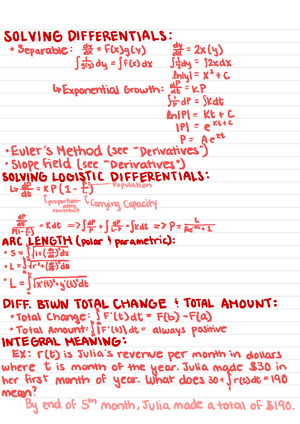 SOLVING DIFFERENTIALS:
• Separable: dy/dx = F(x)g(y) dy/dx = 2x(y)
∫ 1/g(y) dy = ∫F(x)dx ∫ 1/y dy = ∫2xdx
ln|y| = x² + C
↳ Exponential Growth: dP/dt = KP
∫ 1/P dP = ∫Kdt
ln|P| = Kt + C
|P| = e^(Kt+C)
P = Ae^(Kt)
• Euler's Method (see "Derivatives")
• Slope Field (see "Derivatives")
SOLVING LOGISTIC DIFFERENTIALS:
↳ dP/dt = KP(1 - P/L) Population
proportionality constant Carrying Capacity
= Kdt => ∫ dP/P + ∫ = ∫Kdt => P =
ARC LENGTH (polar & parametric):
• S = ∫√1+(dy/dx)² dx
• L = ∫√r²+(dr/dθ)² dθ
• L = ∫√x'(t)²+y'(t)² dt
DIFF. BTWN TOTAL CHANGE & TOTAL AMOUNT:
• Total Change: ∫F'(t)dt = F(b) - F(a)
• Total Amount: ∫|F'(t)|dt = always positive
INTEGRAL MEANING:
EX: r(t) is Julia's revenue per month in dollars
where t is month of the year. Julia made $30 in
her first month of year. What does 30+∫r(t)dt = 190
mean?
By end of 5th month, Julia made a total of $190.